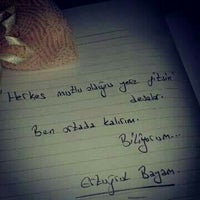 "Herkes mutlu olduğu yere gitsin"
deseler.
Ben ortada kalırım.
Biliyorum...
Ertuğrul Bayam.